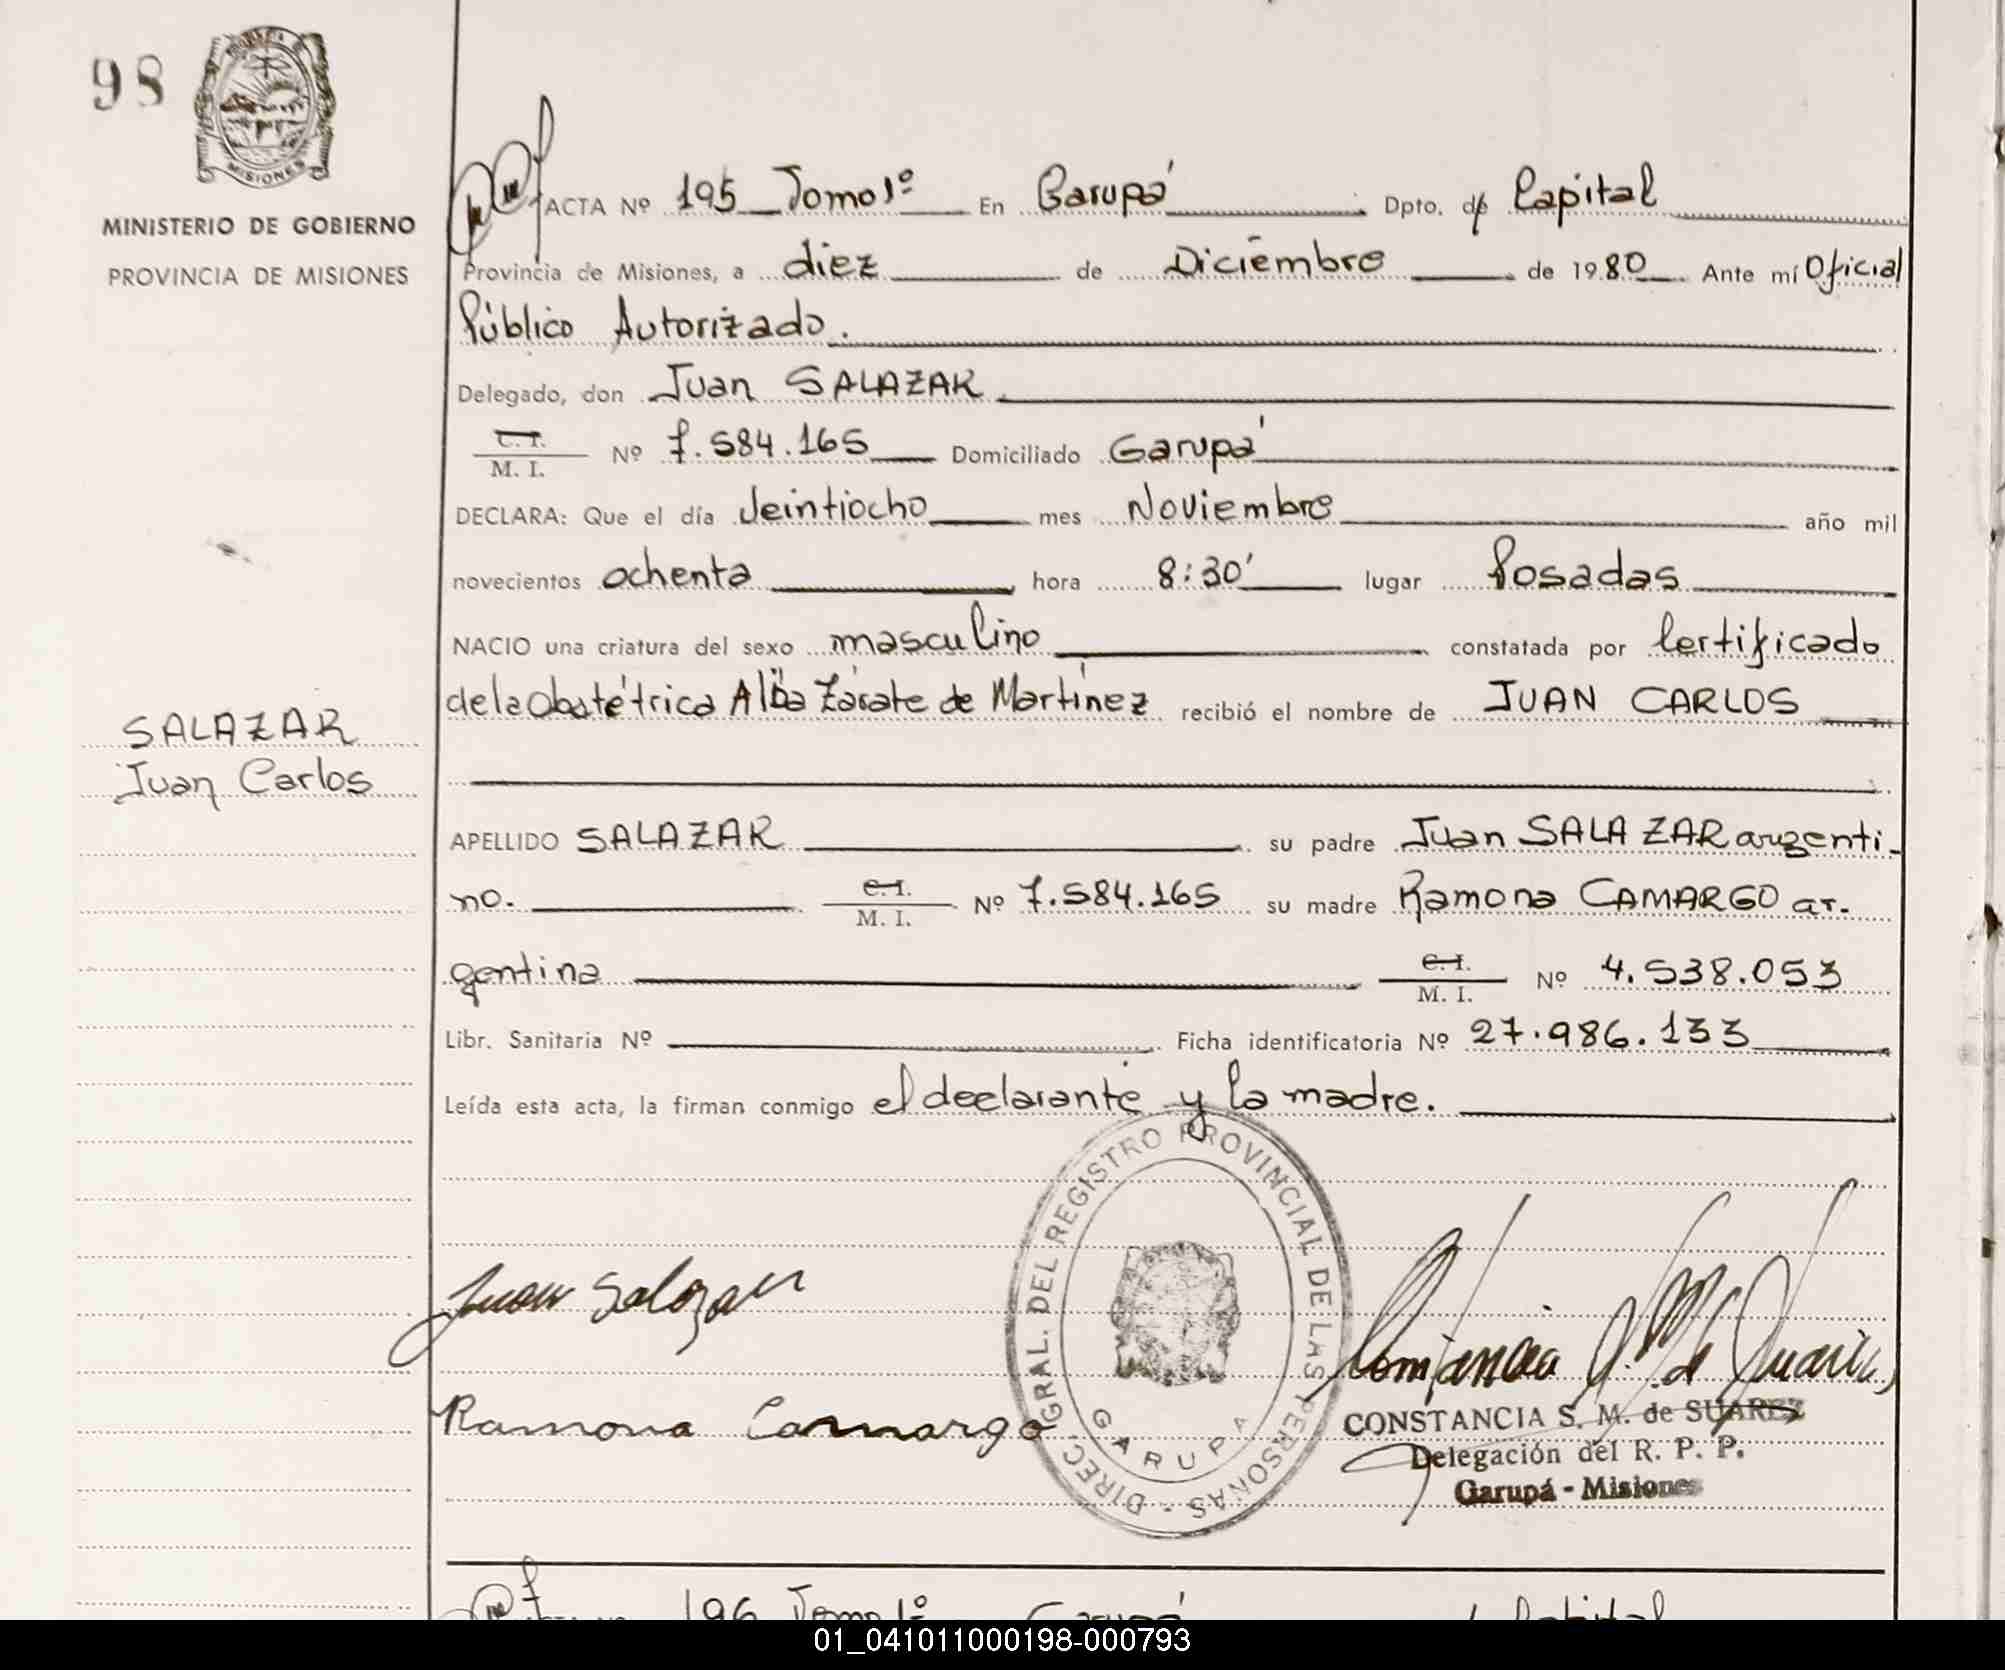 98
MISIONES
MINISTERIO DE GOBIERNO
PROVINCIA DE MISIONES
ACTA Nº 195 Tomo 1º En Garupá Dpto. de Capital
Provincia de Misiones, a diez de Diciembre de 1980 Ante mí Oficial
Público Autorizado.
Delegado, don Juan SALAZAR
C. I.
M. I. Nº 7.584.165 Domiciliado Garupá
DECLARA: Que el día Veintiocho mes Noviembre año mil
novecientos ochenta, hora 8:30' lugar Posadas
NACIO una criatura del sexo masculino constatada por Certificado
de la Obstétrica Alba Zárate de Martínez recibió el nombre de JUAN CARLOS
SALAZAR
Juan Carlos
APELLIDO SALAZAR su padre Juan SALAZAR argenti-
no. C. I.
M. I. Nº 7.584.165 su madre Ramona CAMARGO ar-
gentina C. I.
M. I. Nº 4.538.053
Libr. Sanitaria Nº Ficha identificatoria Nº 27.986.133
Leída esta acta, la firman conmigo el declarante y la madre.
DIREC. GRAL. DEL REGISTRO PROVINCIAL DE LAS PERSONAS -
GARUPA
Juan Salazar
Ramona Camargo
Constancia S. M. de Suarez
CONSTANCIA S. M. de SUAREZ
Delegación del R. P. P.
Garupá - Misiones
196 Tomo 1º Garupá Capital
01_041011000198-000793